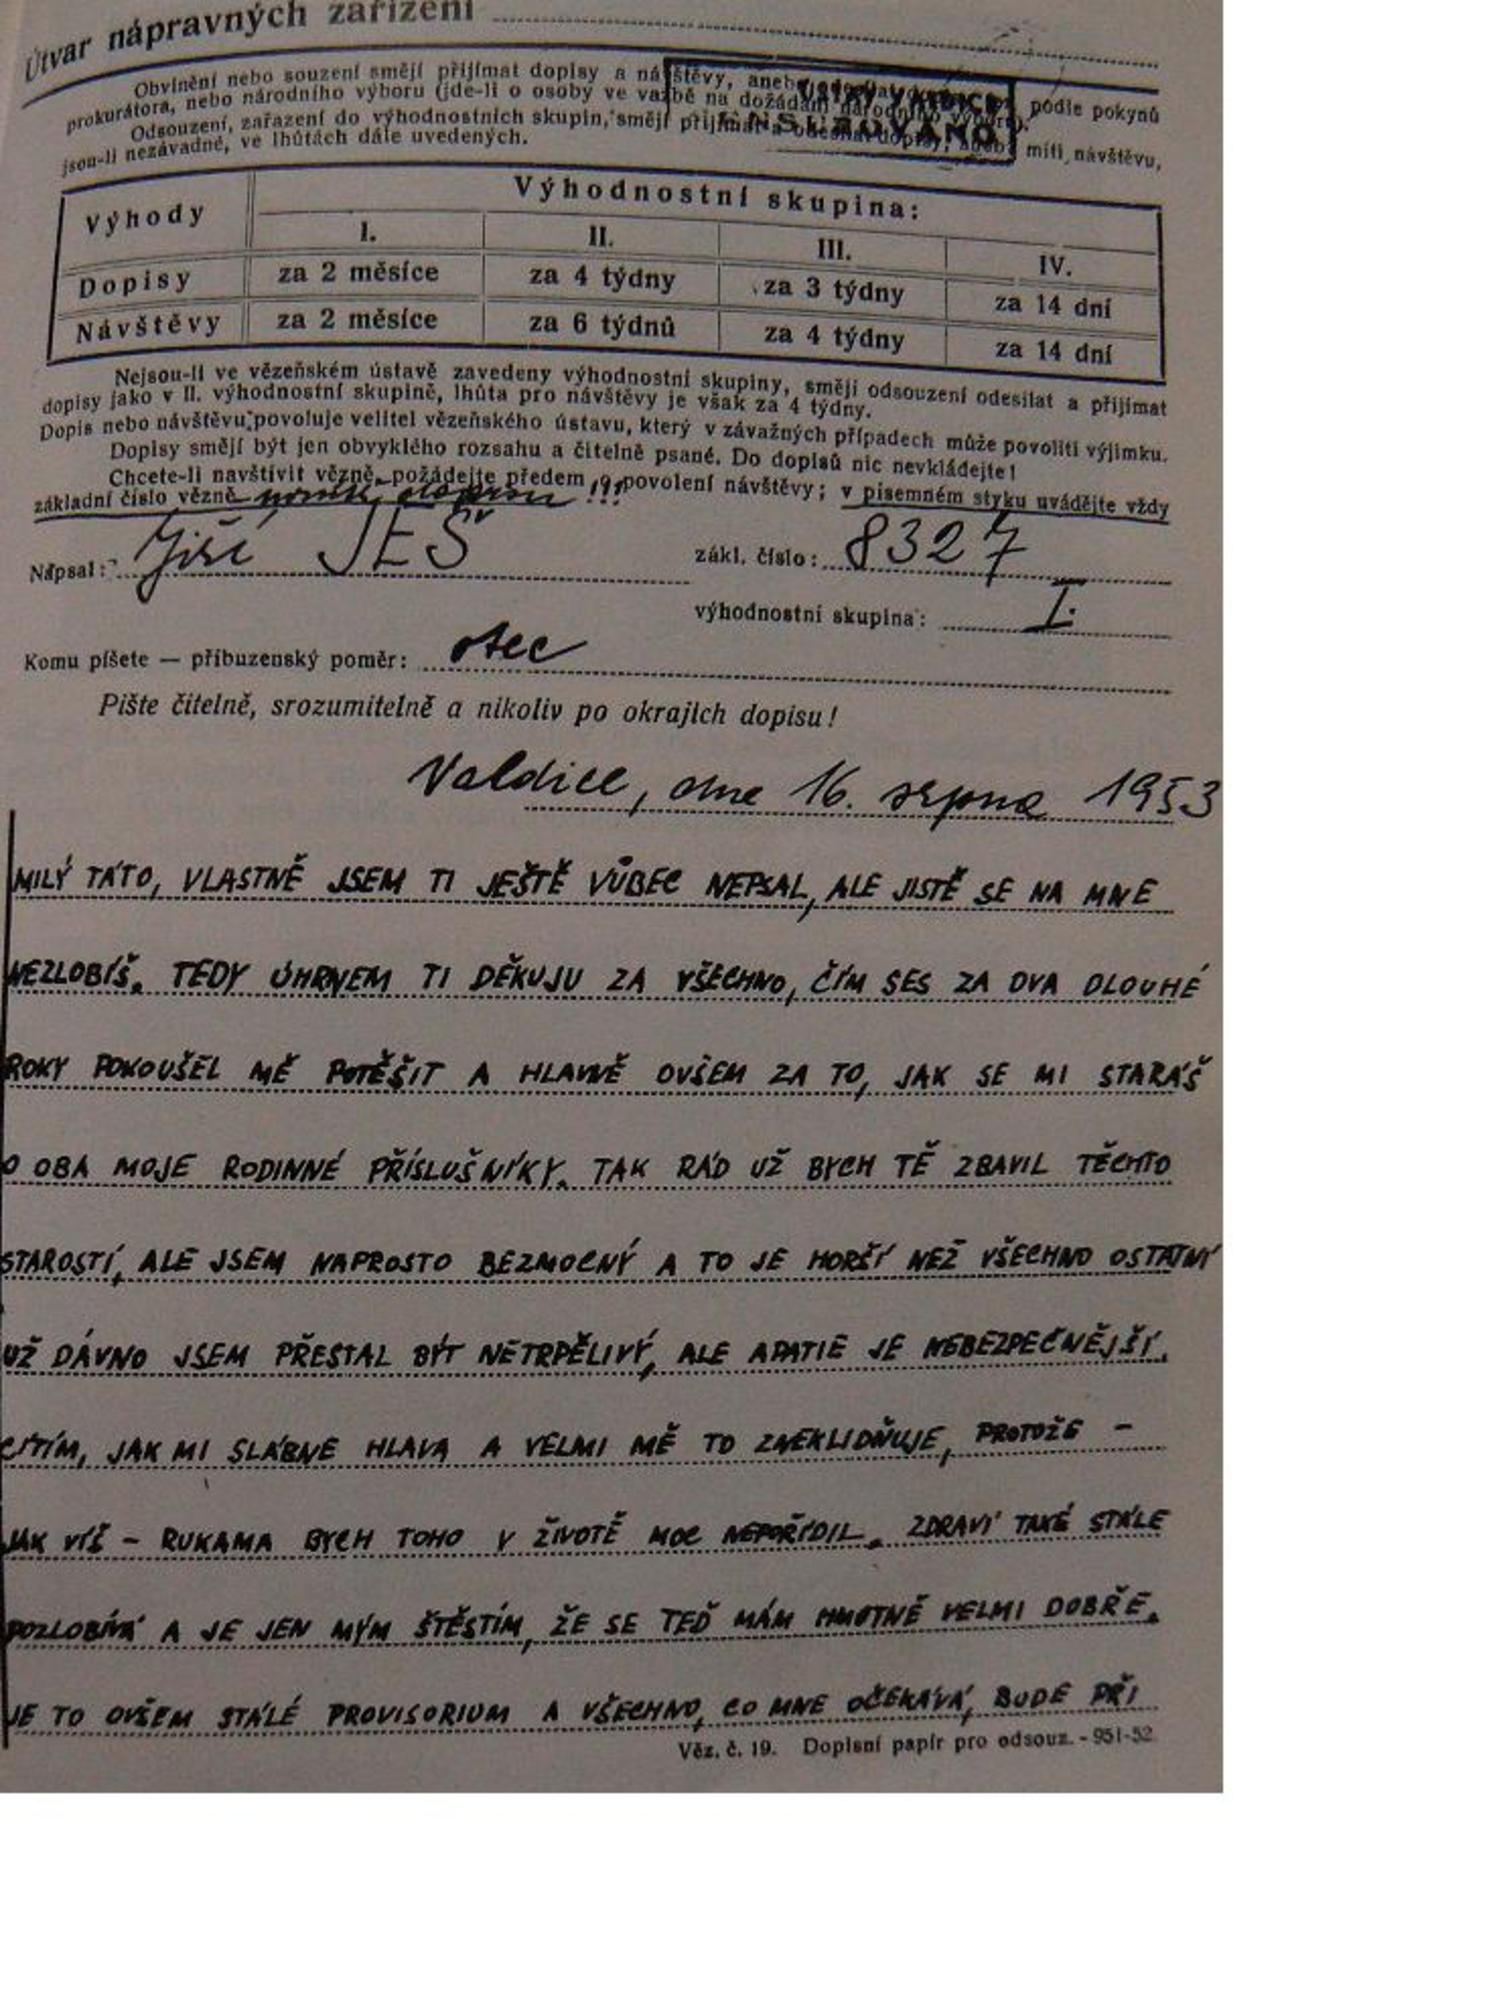 Útvar nápravných zařízení
Obvinění nebo souzení smějí přijímat dopisy a návštěvy, aneb podle pokynů
prokurátora, nebo národního výboru (jde-li o osoby ve vazbě na dožádání národního výboru).
Odsouzení, zařazení do výhodnostních skupin, smějí přijímat a odesílat dopisy, aneb míti návštěvu,
jsou-li nezávadné, ve lhůtách dále uvedených.
CENSUROVÁNO
Výhody Výhodnostní skupina:
I. II. III. IV.
Dopisy za 2 měsíce za 4 týdny za 3 týdny za 14 dní
Návštěvy za 2 měsíce za 6 týdnů za 4 týdny za 14 dní
Nejsou-li ve vězeňském ústavě zavedeny výhodnostní skupiny, smějí odsouzení odesílat a přijímat
dopisy jako v II. výhodnostní skupině, lhůta pro návštěvy je však za 4 týdny.
Dopis nebo návštěvu povoluje velitel vězeňského ústavu, který v závažných případech může povoliti výjimku.
Dopisy smějí být jen obvyklého rozsahu a čitelně psané. Do dopisů nic nevkládejte!
Chcete-li navštívit vězně, požádejte předem o povolení návštěvy; v písemném styku uvádějte vždy
základní číslo vězně !!!
Napsal: Jiří JEŠ zákl. číslo: 8327
výhodnostní skupina: I.
Komu píšete — příbuzenský poměr: otec
Pište čitelně, srozumitelně a nikoliv po okrajích dopisu!
Valdice, dne 16. srpna 1953
MILÝ TÁTO, VLASTNĚ JSEM TI JEŠTĚ VŮBEC NEPSAL, ALE JISTĚ SE NA MNE
NEZLOBÍŠ. TEDY ÚHRNEM TI DĚKUJU ZA VŠECHNO, ČÍM SES ZA DVA DLOUHÉ
ROKY POKOUŠEL MĚ POTĚŠIT A HLAVNĚ OVŠEM ZA TO, JAK SE MI STARÁŠ
O OBA MOJE RODINNÉ PŘÍSLUŠNÍKY. TAK RÁD UŽ BYCH TĚ ZBAVIL TĚCHTO
STAROSTÍ, ALE JSEM NAPROSTO BEZMOCNÝ A TO JE HORŠÍ NEŽ VŠECHNO OSTATNÍ
UŽ DÁVNO JSEM PŘESTAL BÝT NETRPĚLIVÝ, ALE APATIE JE NEBEZPEČNĚJŠÍ.
CÍTÍM, JAK MI SLÁBNE HLAVA A VELMI MĚ TO ZNEKLIDŇUJE, PROTOŽE –
JAK VÍŠ – RUKAMA BYCH TOHO V ŽIVOTĚ MOC NEPOŘÍDIL. ZDRAVÍ TAKÉ STÁLE
POZLOBÍVÁ A JE JEN MÝM ŠTĚSTÍM, ŽE SE TEĎ MÁM HMOTNĚ VELMI DOBŘE.
JE TO OVŠEM STÁLÉ PROVISORIUM A VŠECHNO, CO MNE OČEKÁVÁ, BUDE PŘI
Věz. č. 19. Dopisní papír pro odsouz. - 951-52